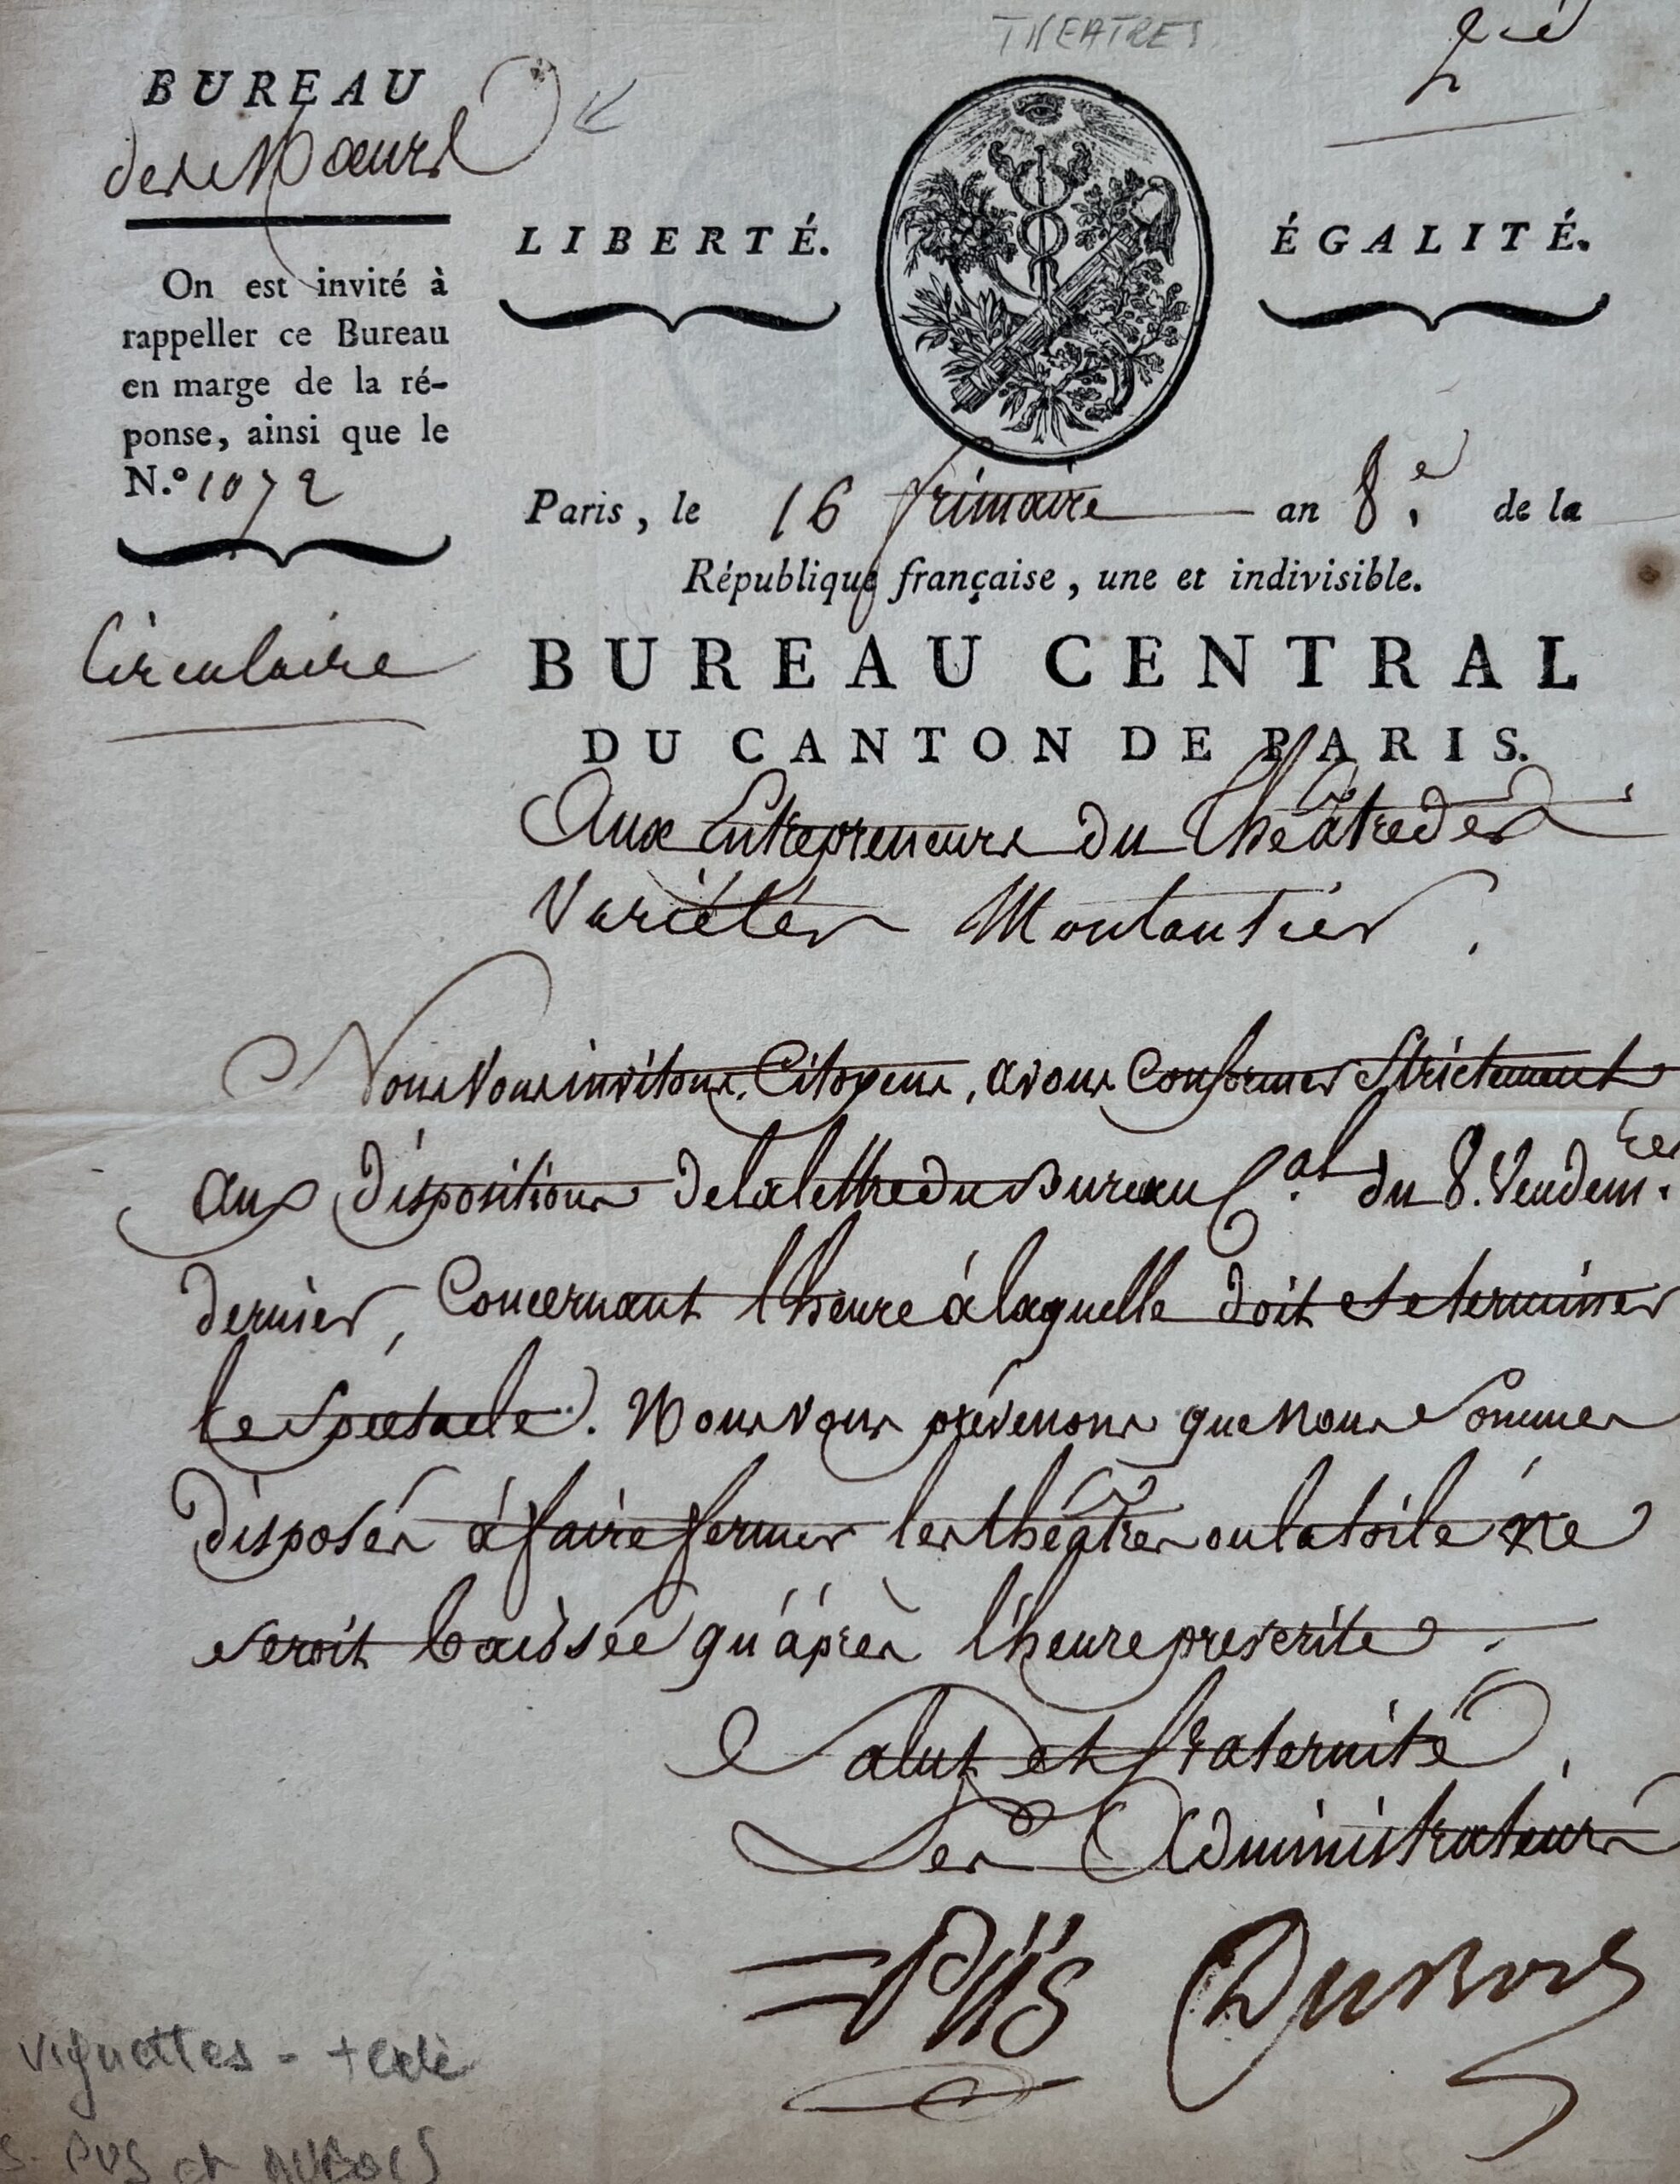 THEATRES
BUREAU
des Mœurs
On est invité à
rappeller ce Bureau
en marge de la ré-
ponse, ainsi que le
N.º 1072
Circulaire
LIBERTÉ.
ÉGALITÉ.
Paris, le 16 frimaire an 8.e de la
République française, une et indivisible.
BUREAU CENTRAL
DU CANTON DE PARIS.
Aux Entrepreneurs du Théâtre des
Variétés Montansier.
Nous Vous invitons, Citoyens, a vous Conformer Strictement
aux dispositions de la lettre du Bureau C.al du 8. Vendem.re
dernier, Concernant l'heure à laquelle doit se terminer
le Spectacle. Nous vous prévenons que Nous Sommes
disposés à faire fermer les théâtres ou la toile ne
seroit baissée qu'après l'heure prescrite.
Salut et fraternité,
Les Administrateurs
Piis Dubois
vignettes - + texte
S. PIIS et DUBOIS